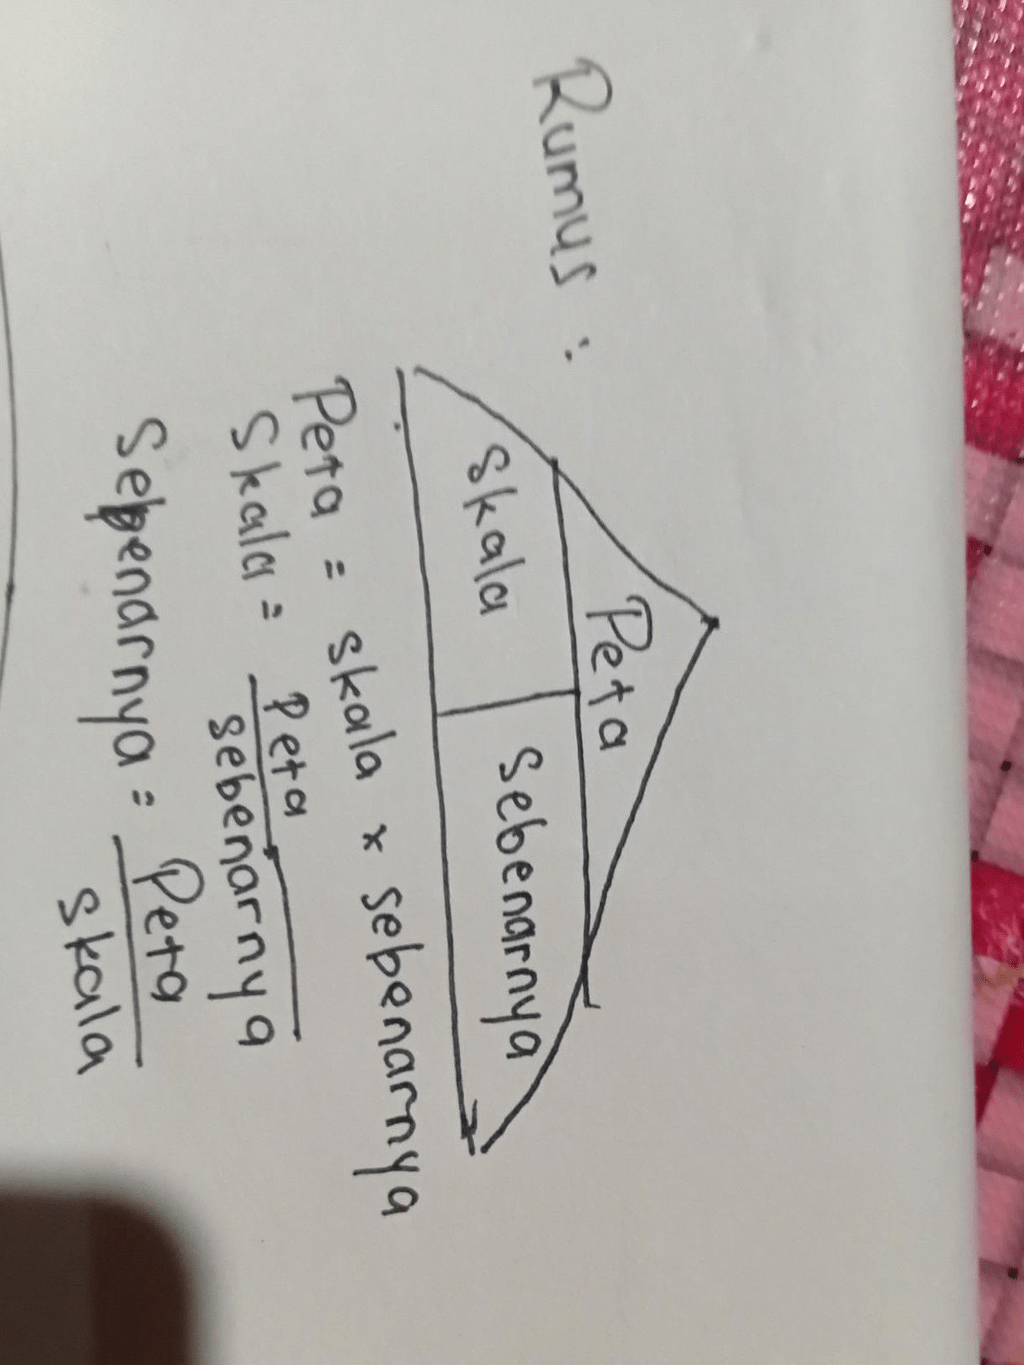 Rumus :
Peta
Skala Sebenarnya
Peta = skala x sebenarnya
Skala = Peta
sebenarnya
Sebenarnya = Peta
Skala